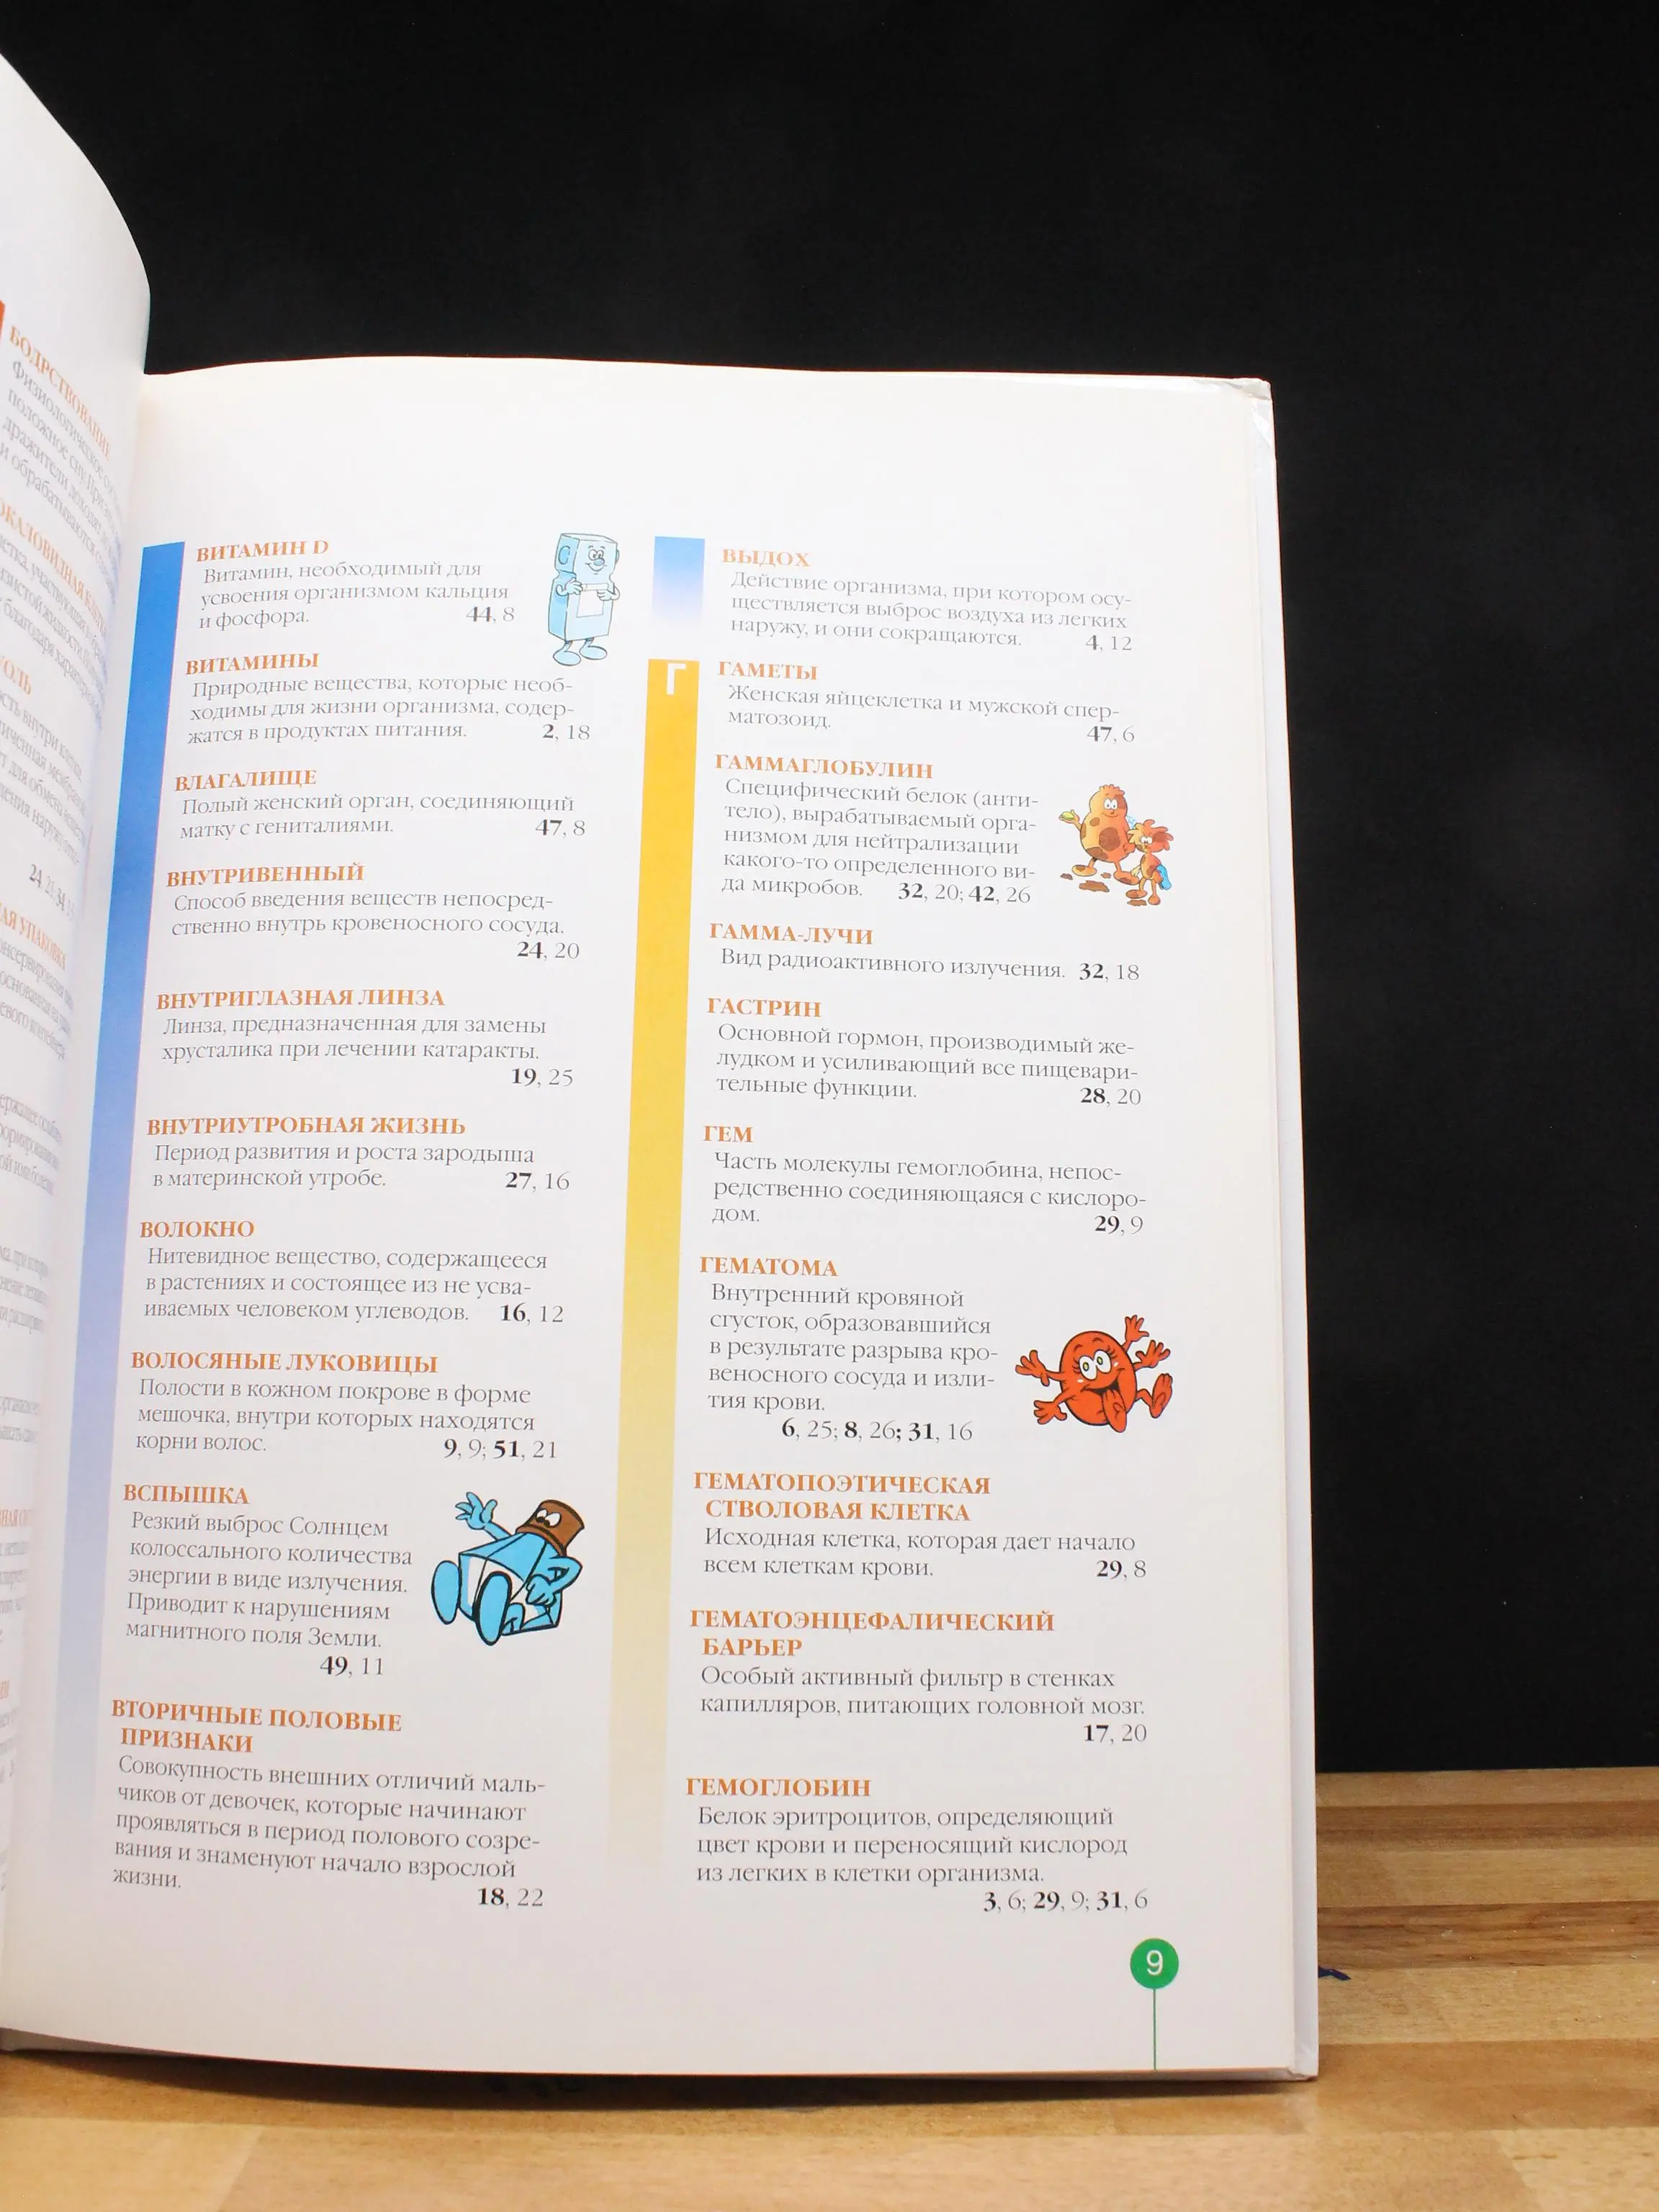 БОДРСТВОВАНИЕ
ВИТАМИН D
Витамин, необходимый для
усвоения организмом кальция
и фосфора. 44, 8
ВИТАМИНЫ
Природные вещества, которые необ-
ходимы для жизни организма, содер-
жатся в продуктах питания. 2, 18
ВЛАГАЛИЩЕ
Полый женский орган, соединяющий
матку с гениталиями. 47, 8
ВНУТРИВЕННЫЙ
Способ введения веществ непосред-
ственно внутрь кровеносного сосуда.
24, 20
ВНУТРИГЛАЗНАЯ ЛИНЗА
Линза, предназначенная для замены
хрусталика при лечении катаракты.
19, 25
ВНУТРИУТРОБНАЯ ЖИЗНЬ
Период развития и роста зародыша
в материнской утробе. 27, 16
ВОЛОКНО
Нитевидное вещество, содержащееся
в растениях и состоящее из не усва-
иваемых человеком углеводов. 16, 12
ВОЛОСЯНЫЕ ЛУКОВИЦЫ
Полости в кожном покрове в форме
мешочка, внутри которых находятся
корни волос. 9, 9; 51, 21
ВСПЫШКА
Резкий выброс Солнцем
колоссального количества
энергии в виде излучения.
Приводит к нарушениям
магнитного поля Земли.
49, 11
ВТОРИЧНЫЕ ПОЛОВЫЕ
ПРИЗНАКИ
Совокупность внешних отличий маль-
чиков от девочек, которые начинают
проявляться в период полового созре-
вания и знаменуют начало взрослой
жизни. 18, 22
ВЫДОХ
Действие организма, при котором осу-
ществляется выброс воздуха из легких
наружу, и они сокращаются. 4, 12
Г
ГАМЕТЫ
Женская яйцеклетка и мужской спер-
матозоид. 47, 6
ГАММАГЛОБУЛИН
Специфический белок (анти-
тело), вырабатываемый орга-
низмом для нейтрализации
какого-то определенного ви-
да микробов. 32, 20; 42, 26
ГАММА-ЛУЧИ
Вид радиоактивного излучения. 32, 18
ГАСТРИН
Основной гормон, производимый же-
лудком и усиливающий все пищевари-
тельные функции. 28, 20
ГЕМ
Часть молекулы гемоглобина, непос-
редственно соединяющаяся с кислоро-
дом. 29, 9
ГЕМАТОМА
Внутренний кровяной
сгусток, образовавшийся
в результате разрыва кро-
веносного сосуда и изли-
тия крови.
6, 25; 8, 26; 31, 16
ГЕМАТОПОЭТИЧЕСКАЯ
СТВОЛОВАЯ КЛЕТКА
Исходная клетка, которая дает начало
всем клеткам крови. 29, 8
ГЕМАТОЭНЦЕФАЛИЧЕСКИЙ
БАРЬЕР
Особый активный фильтр в стенках
капилляров, питающих головной мозг.
17, 20
ГЕМОГЛОБИН
Белок эритроцитов, определяющий
цвет крови и переносящий кислород
из легких в клетки организма.
3, 6; 29, 9; 31, 6
9